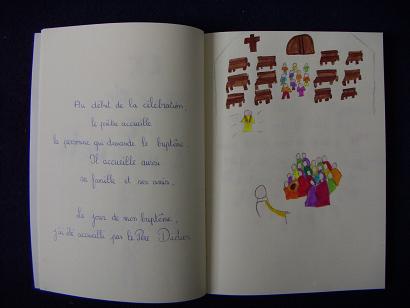 Au début de la célébration,
le prêtre accueille
la personne qui demande le baptême.
Il accueille aussi
sa famille et ses amis.
Le jour de mon baptême,
j'ai été accueillie par le Père